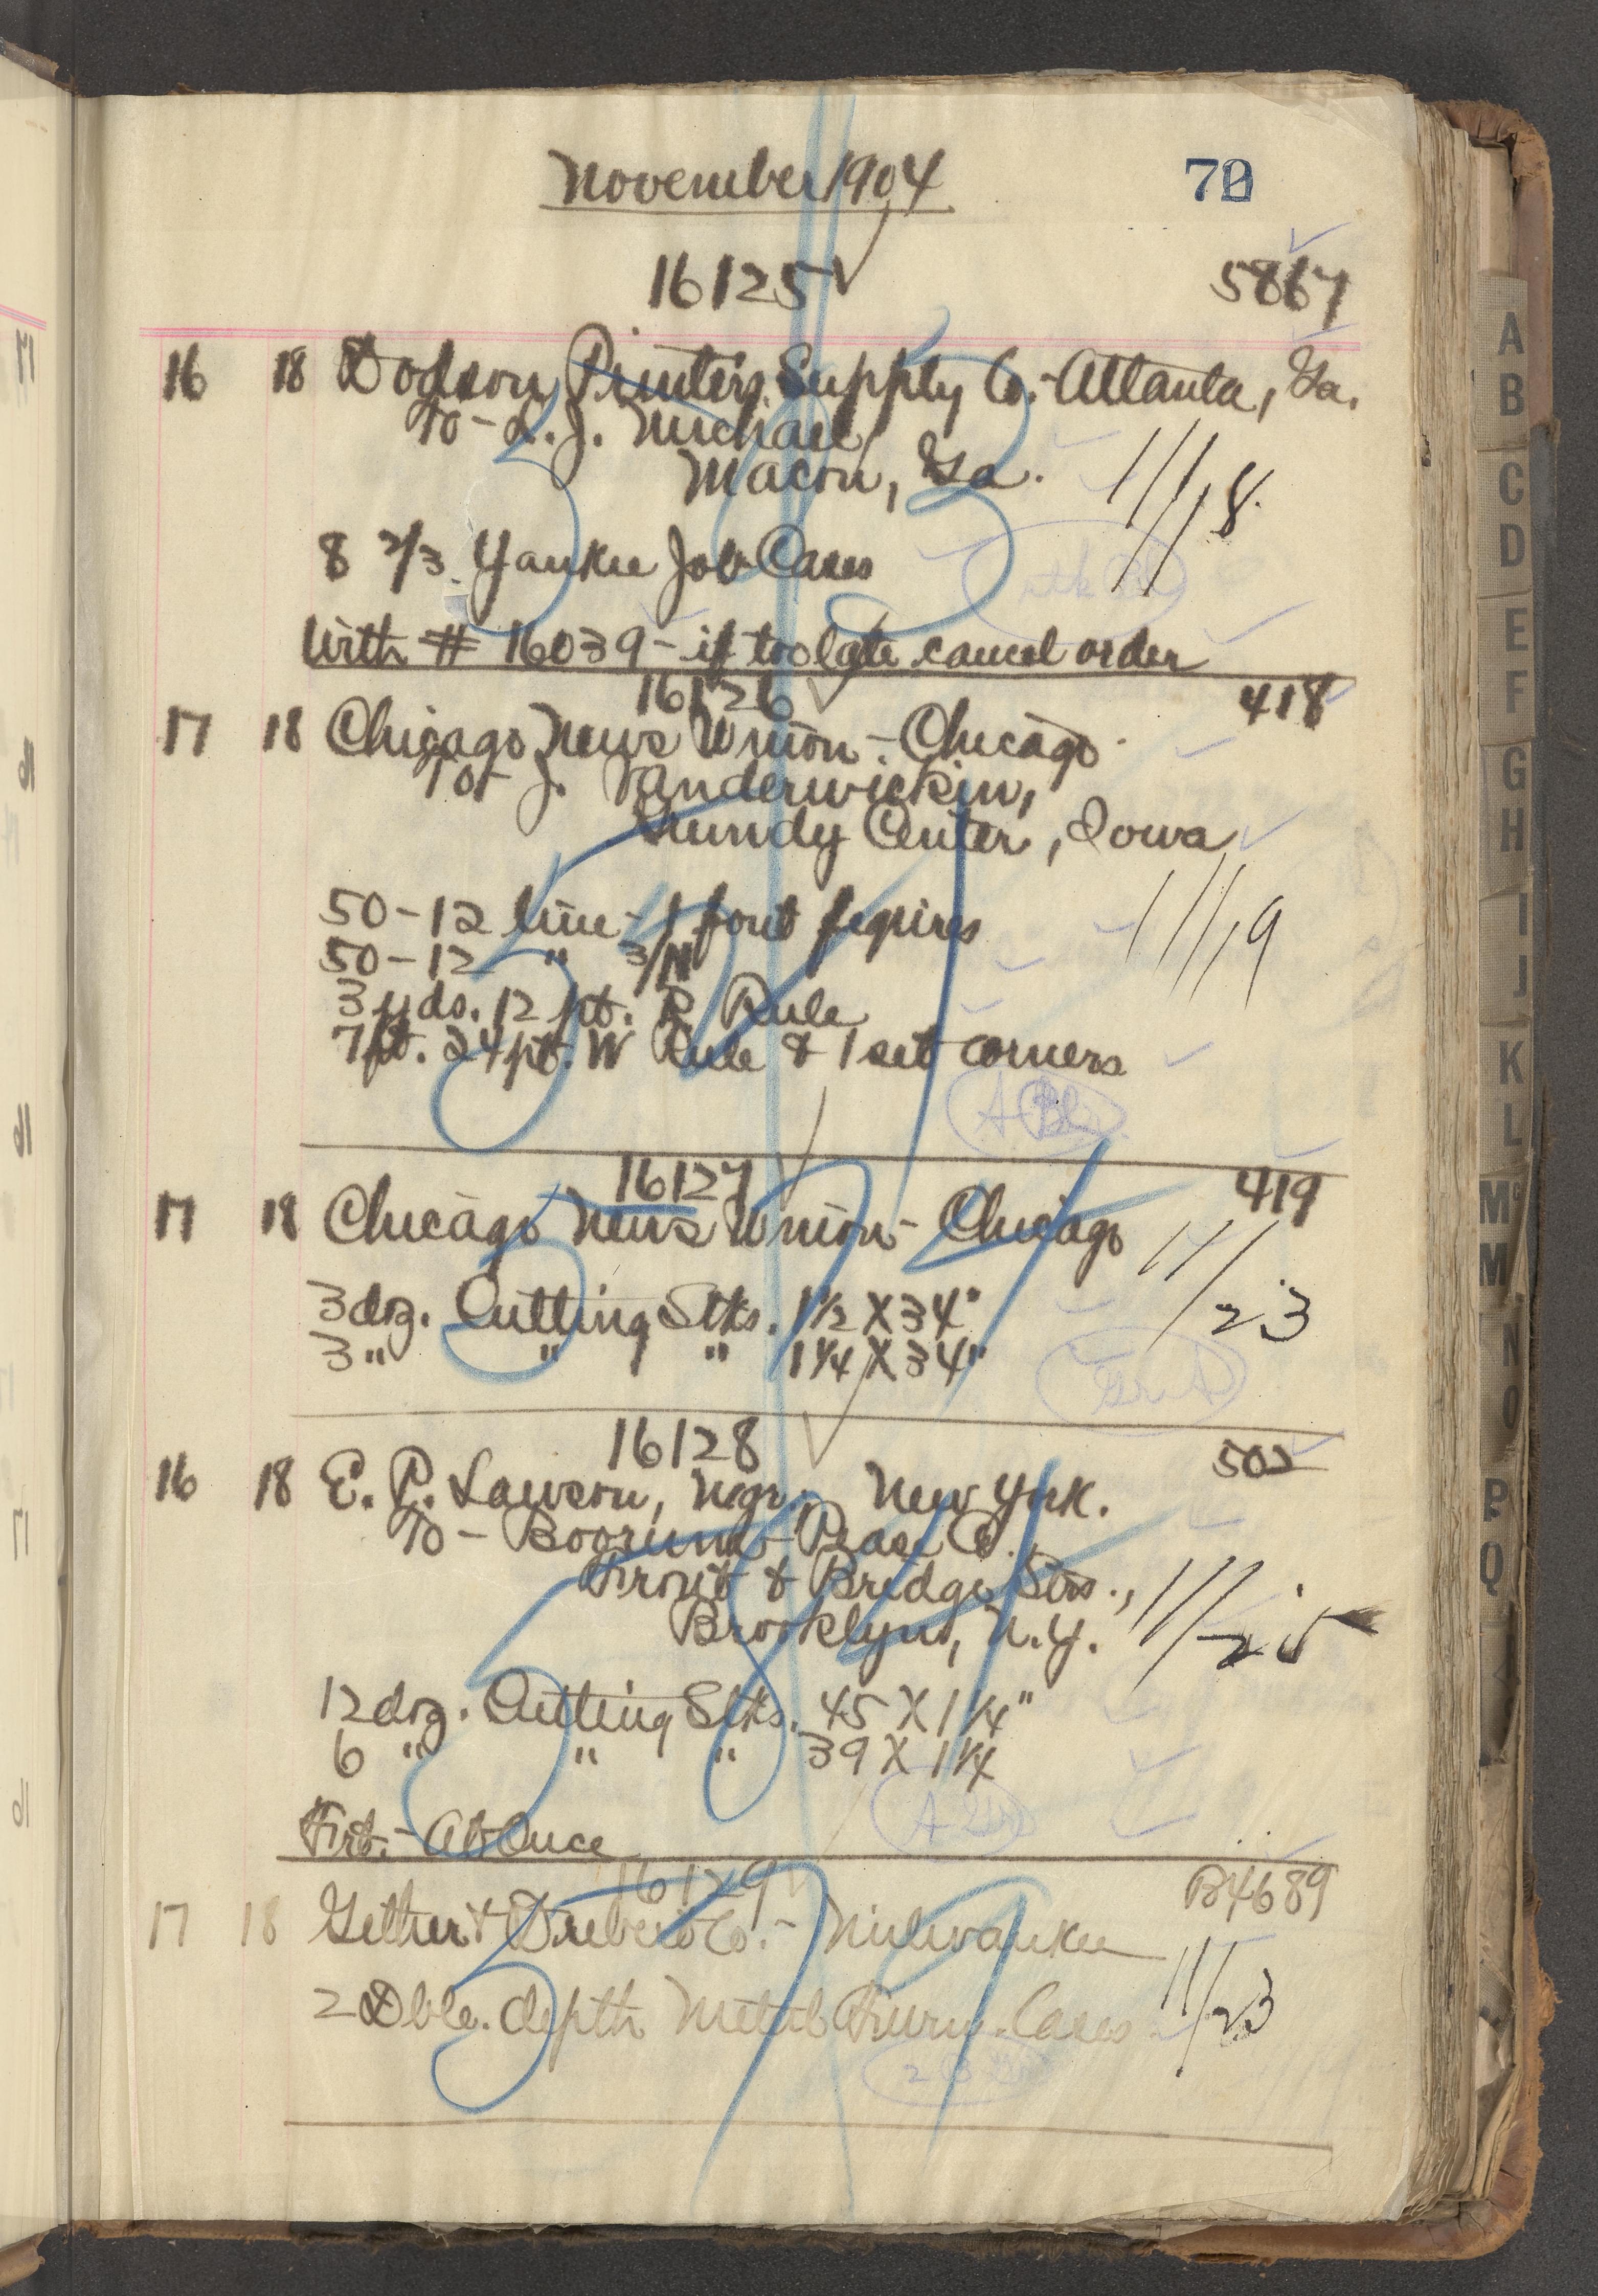 November 1904
16125 5867
16 18 Dodson Printers Supply Co. - Atlanta, Ga.
To - L. J. Michael,
Macon, Ga.
11/18
8 2/3 Yankee Job Cases
With # 16039 - if too late cancel order
16126 418
17 18 Chicago News Union - Chicago
To - J. Vanderwickin,
Grundy Center, Iowa
50 - 12 line - 1 font figures
11/19
50 - 12 " 3/N
3 yds. 12 pt. R. Rule
7 ft. 24 pt. W Rule & 1 set corners
16127 419
17 18 Chicago News Union - Chicago
3 doz. Cutting Stks. 1½ X 34"
11/23
3 " " " 1¼ X 34"
16128 502
16 18 E. P. Lawson, Mgr. New York.
To - Boorum - Pease Co.
Front & Bridge Sts.,
Brooklyn, N.Y.
11/25
12 doz. Cutting Stks. 45 X 1¼"
6 " " " 39 X 1¼
Frt. - At Once
16129 B4689
17 18 Gether & Drebert Co. - Milwaukee
2 Dble. depth Metal Furn. Cases
11/23
A
B
C
D
E
F
G
H
I
J
K
L
Mc
M
N
O
P
Q